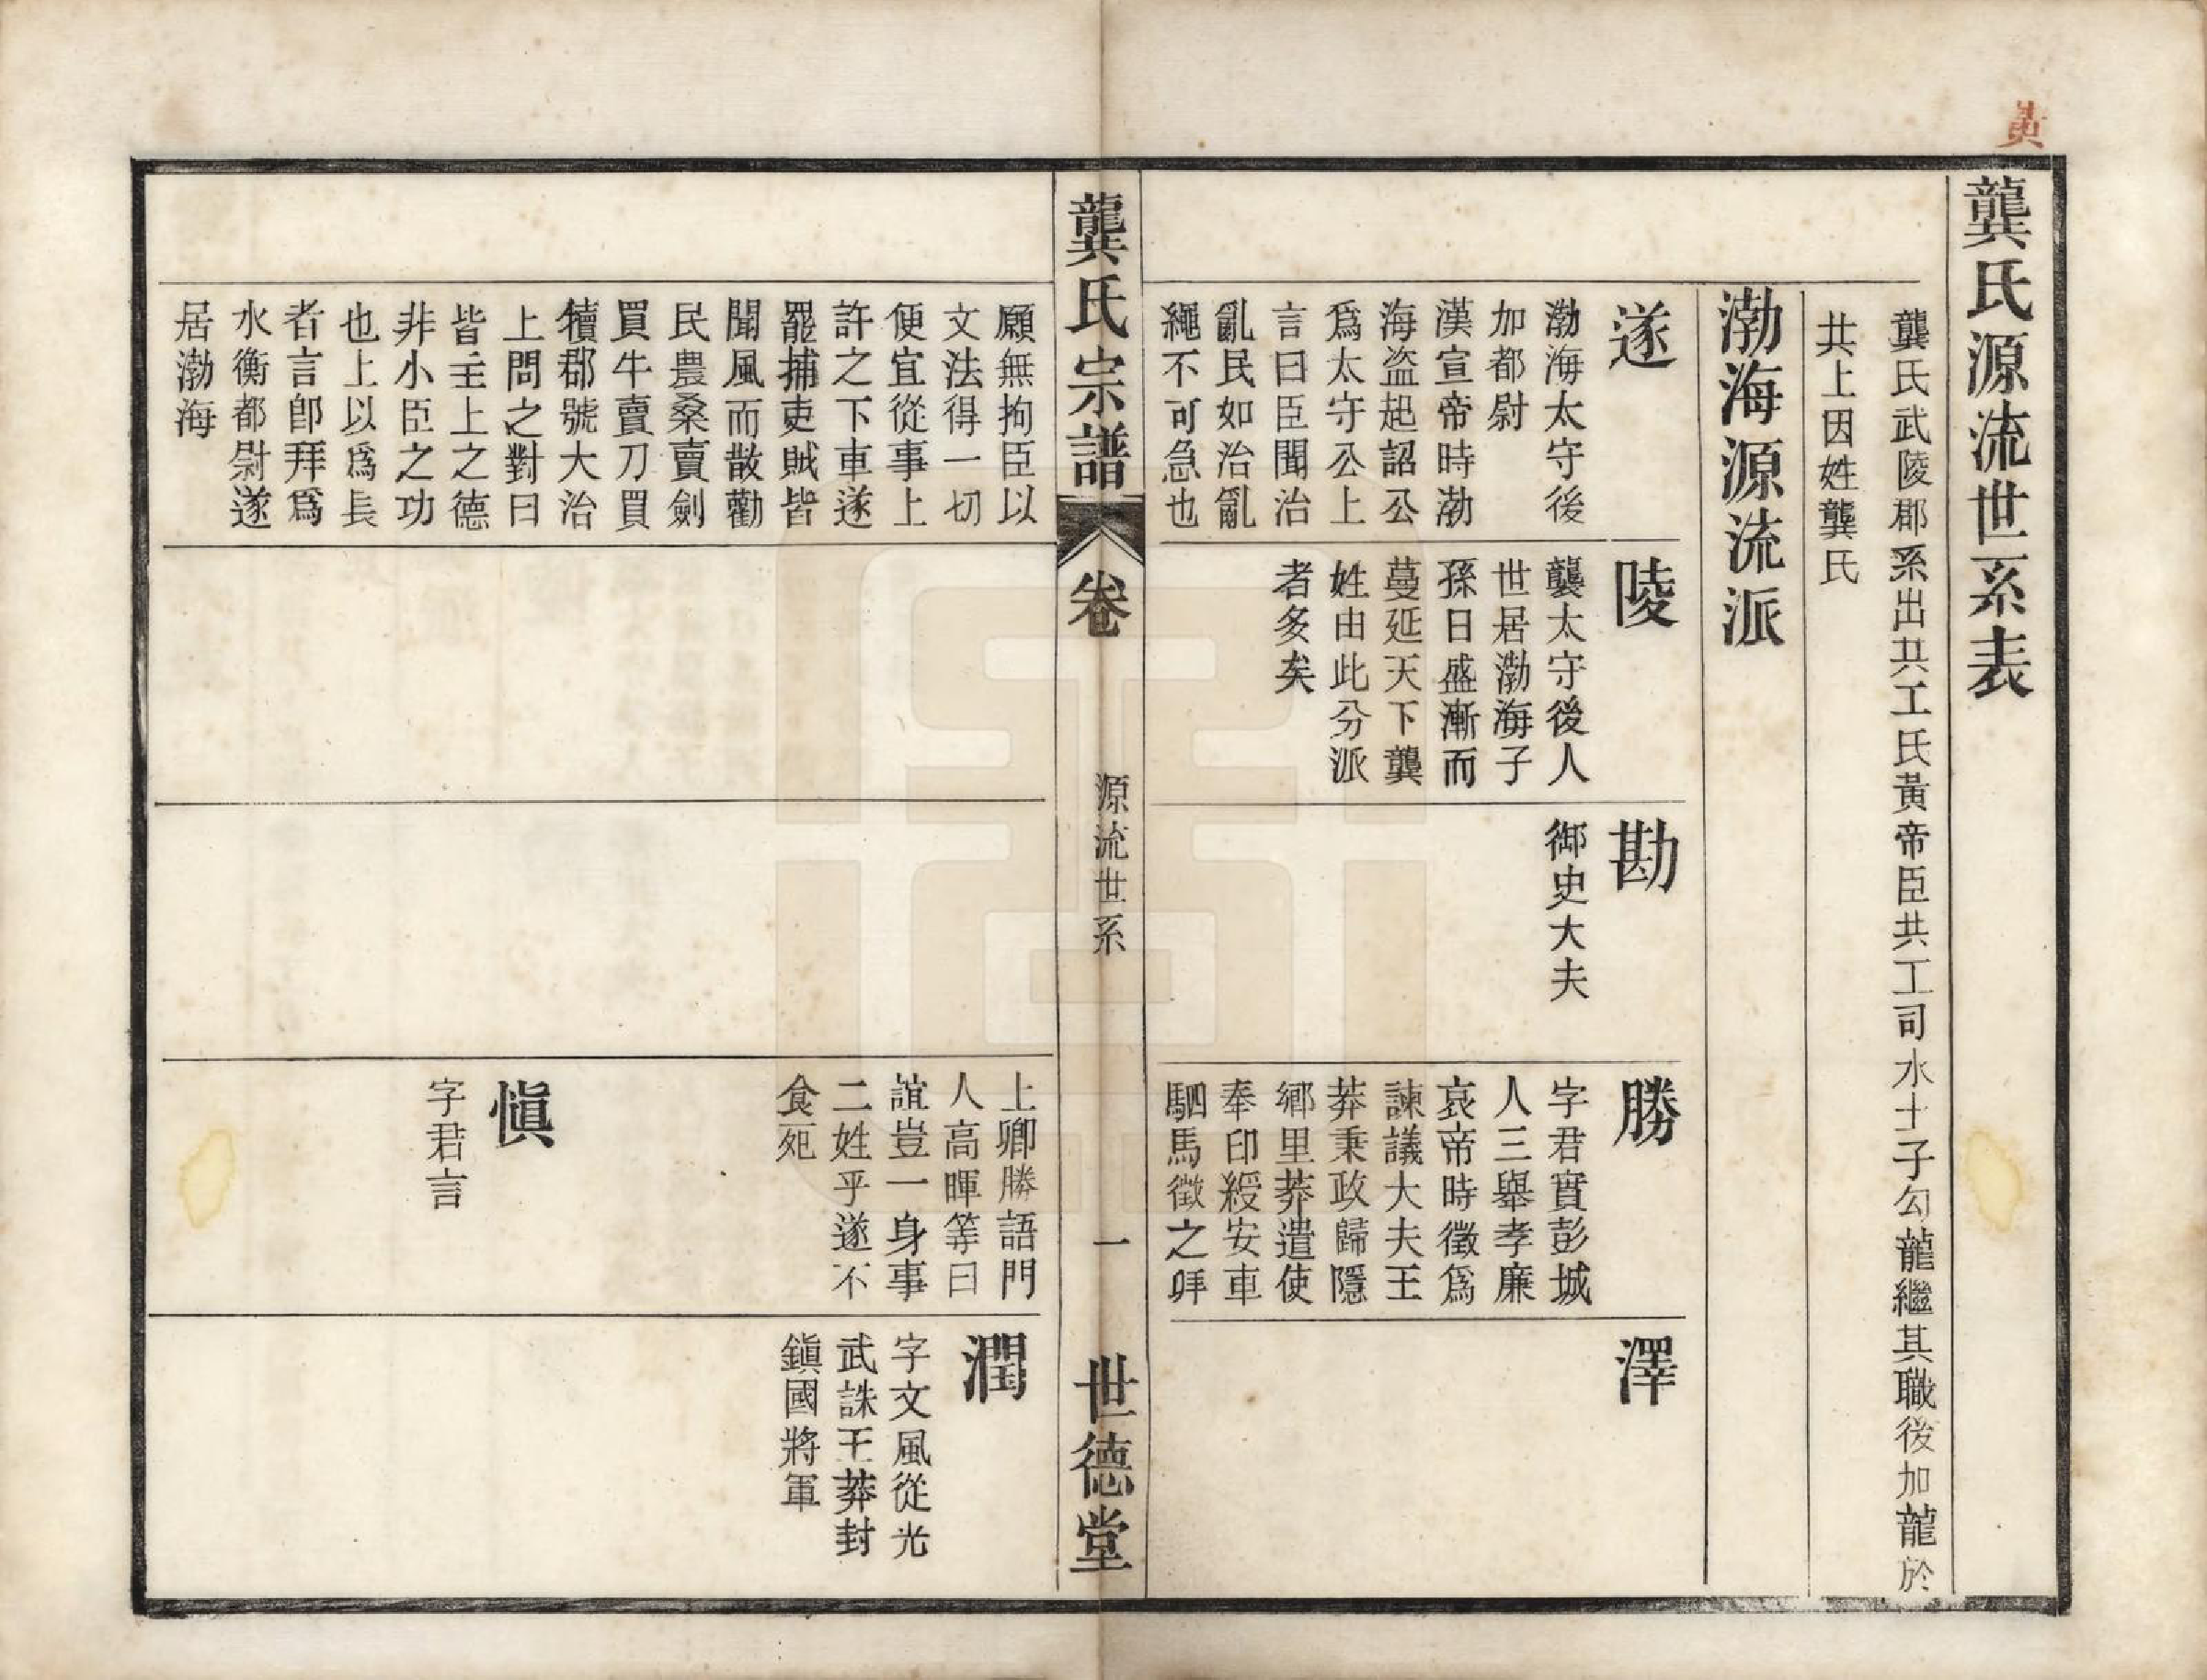 黃
龔氏源流世系表
龔氏武陵郡系出共工氏黃帝臣共工司水土子勾龍繼其職後加龍於
共上因姓龔氏
渤海源流派
遂
渤海太守後
加都尉
漢宣帝時渤
海盜起詔公
爲太守公上
言曰臣聞治
亂民如治亂
繩不可急也
陵
龔太守後人
世居渤海子
孫日盛漸而
蔓延天下龔
姓由此分派
者多矣
勘
御史大夫
勝
字君實彭城
人三舉孝廉
哀帝時徵爲
諫議大夫王
莽秉政歸隱
鄉里莽遣使
奉印綬安車
駟馬徵之拜
澤
龔氏宗譜
卷
源流世系
一
世德堂
願無拘臣以
文法得一切
便宜從事上
許之下車遂
罷捕吏賊皆
聞風而散勸
民農桑賣劍
買牛賣刀買
犢郡號大治
上問之對曰
皆主上之德
非小臣之功
也上以爲長
者言卽拜爲
水衡都尉遂
居渤海
上卿勝語門
人高暉等曰
誼豈一身事
二姓乎遂不
食死
愼
字君言
潤
字文風從光
武誅王莽封
鎭國將軍